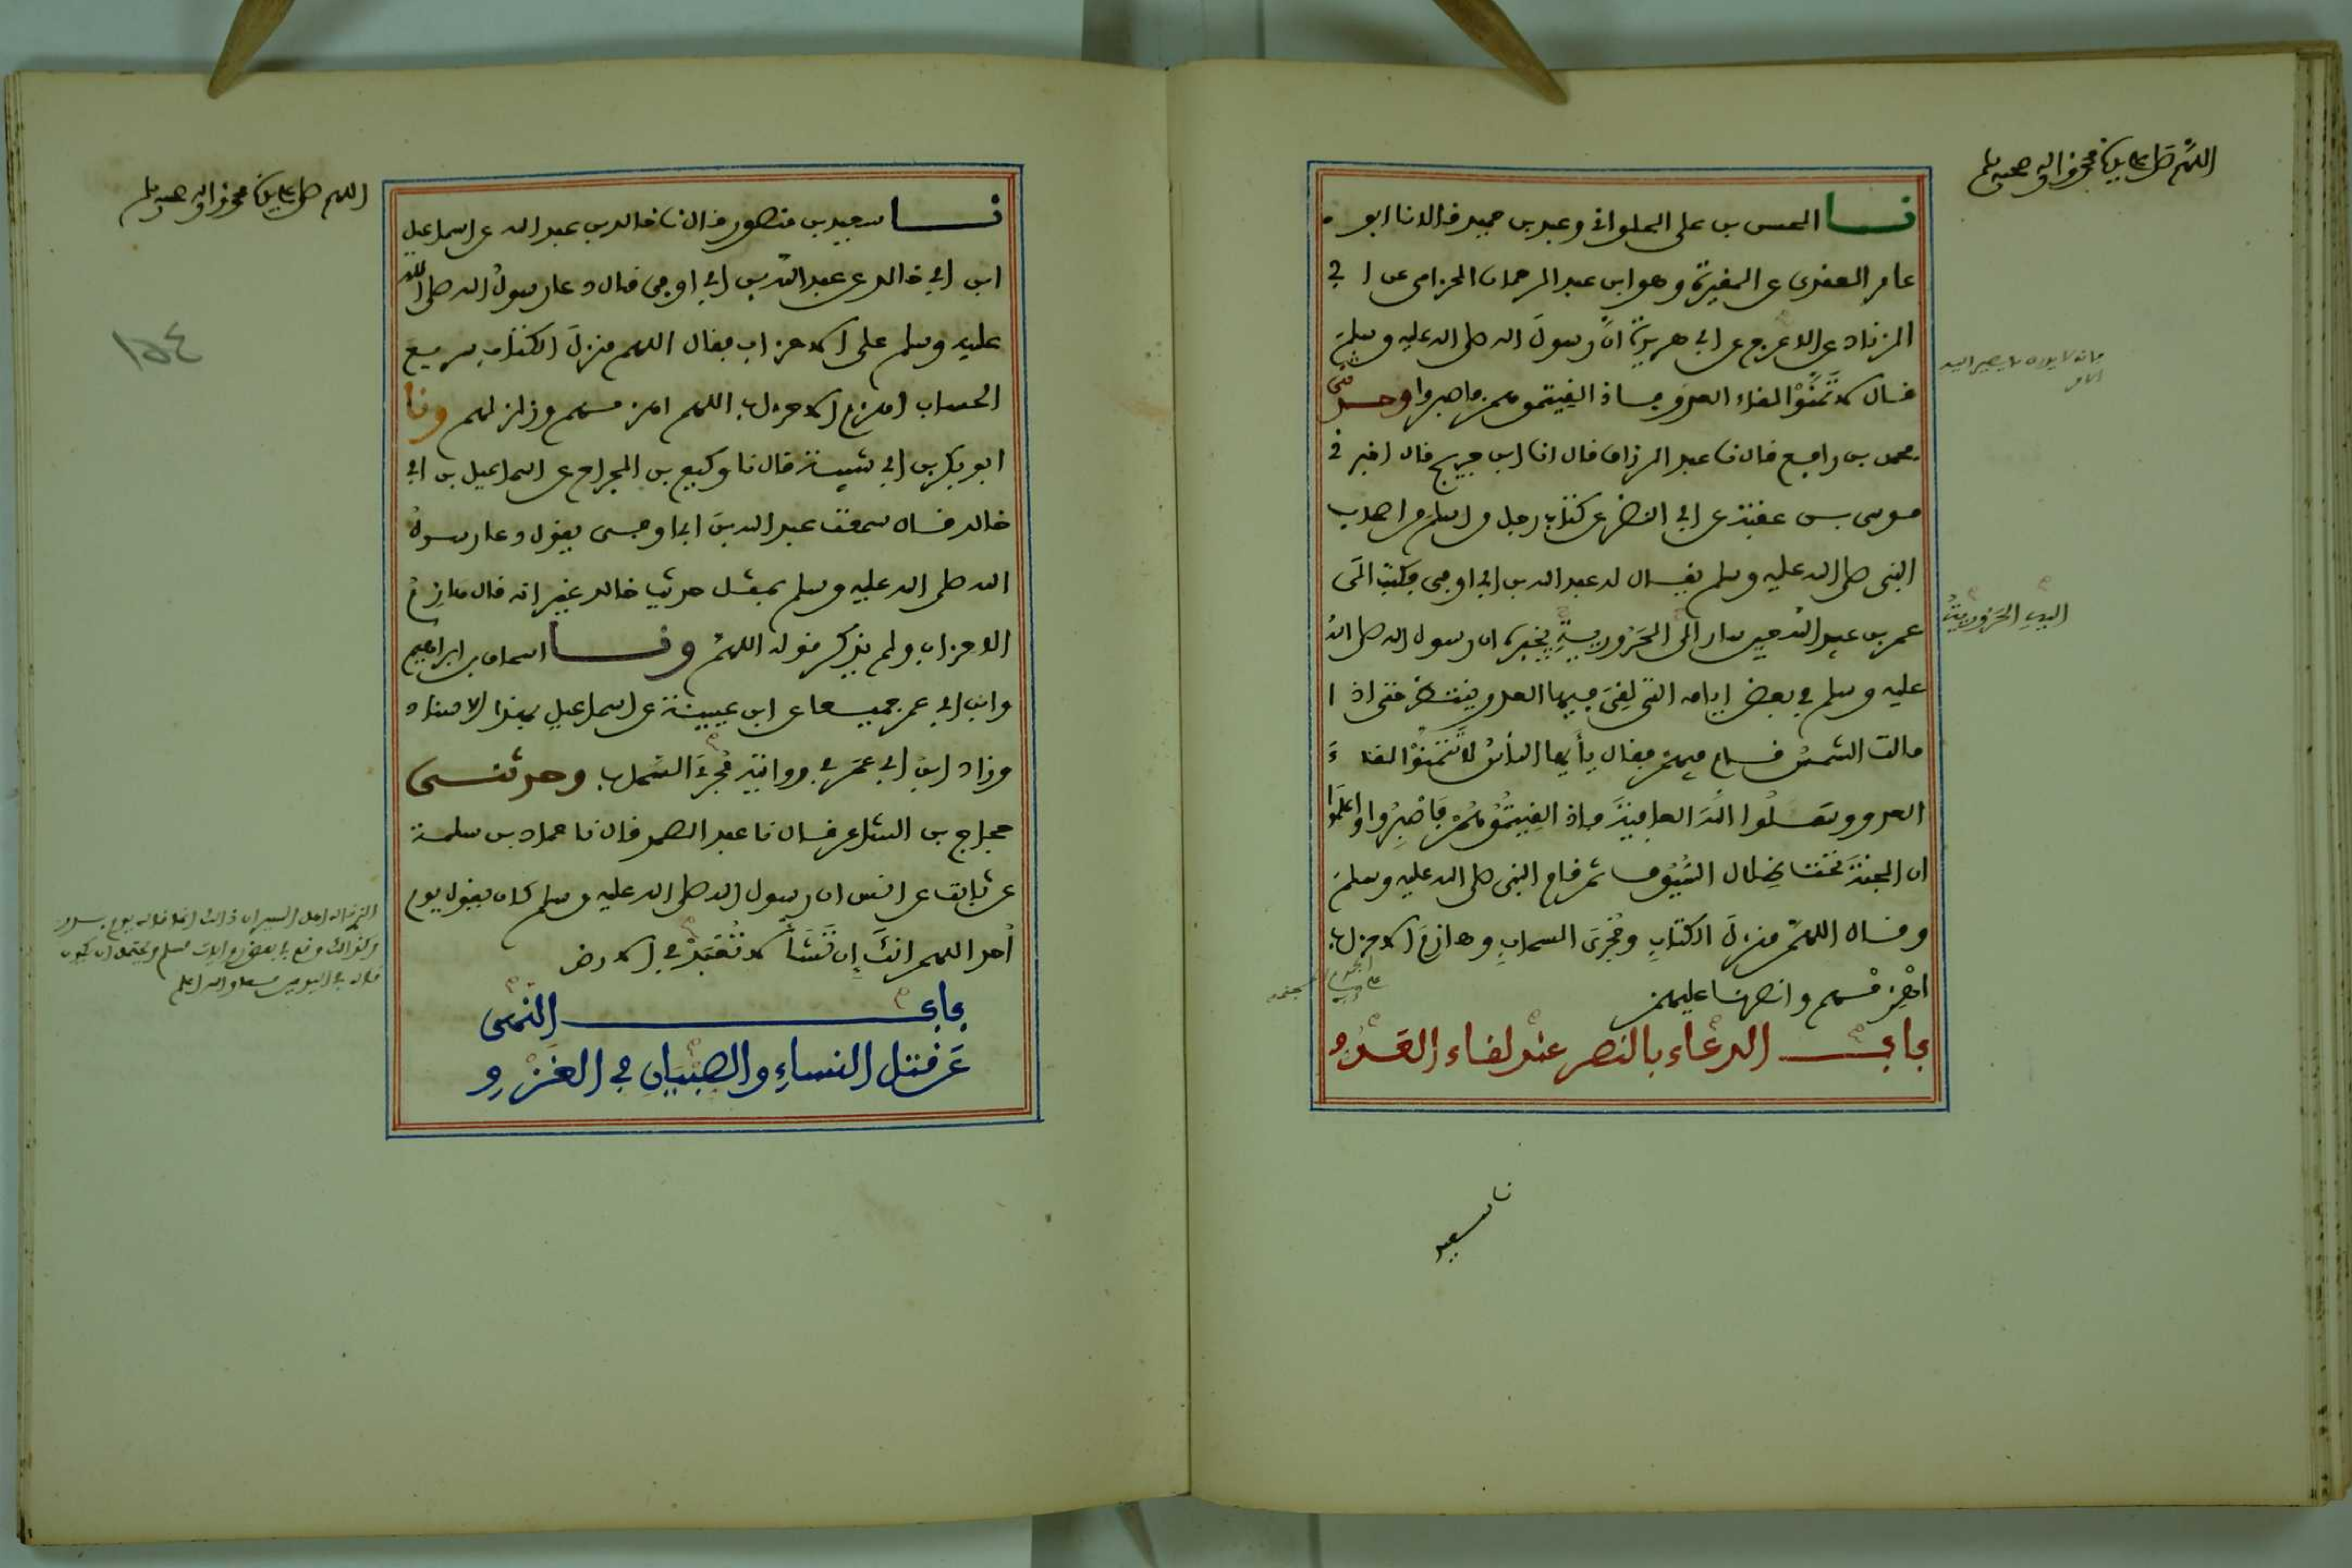 اللهم صل على سيدنا محمد واله وصحبه وسلم
نا الحسن بن على الحلوانى وعبد بن حميد قالا نا ابو
عامر العقدى عن المغيرة وهو ابن عبد الرحمان الحزامى عن ابى
الزناد عن الاعرج عن ابى هريرة انّ رسولَ الله صلى الله عليه وسلمَ
قال لا تَمَنَّوْا لقاء العدو فاذا لقيتموهم فاصبروا وحدثنى
محمد بن رافع قال نا عبد الرزاق قال انا ابن جريج قال اخبرنى
موسى بن عقبة عن ابى النضر عن كتاب رجل من اسلم من اصحاب
النبى صلى الله عليه وسلم يقال له عبد الله بن ابى اوفى فكتب الى
عمر بن عبيد الله حين سار الى الحَرُورِيةِ يخبره ان رسول الله صلى الله
عليه وسلم فى بعض ايامه التى لقِىَ فيها العدو ينتظر حتى اذا
مالت الشمسُ قام فيهمْ فقال يأيها الناسُ لا تَتَمَنَّوْا لقاءَ
العدو وسَلُوا اللهَ العافيةَ فاذا لقِيتُمُوهُمْ فَاصْبِرُوا واعلَمُوا
ان الجنةَ تحت ظِلال السُّيُوف ثم قام النبى صلى الله عليه وسلمَ
وقال اللهمّ منزلَ الكتابِ ومُجْرىَ السحابِ وهازِمَ الاحزاب
اهْزِمْهم وانصرنا عليهم
باب الدعاء بالنصر عند لقاء العَدُوِّ
الامر
اليه الحَرُورِيةُ
نا سعيد
اللهم صل على سيدنا محمد واله وصحبه وسلم
نا سعيد بن منصور قال نا خالد بن عبد الله عن اسماعيل
ابن ابى خالد عن عبد الله بن ابى اوفى قال دعا رسولُ الله صلى الله
عليه وسلم على الاحزاب فقال اللهم منزلَ الكتاب سريع
الحساب اهزم الاحزاب اللهم اهزمهم وزلزلهم ونا
ابو بكر بن ابى شيبة قال نا وكيع بن الجراح عن اسماعيل بن ابى
خالد قال سمعت عبد الله بنَ ابى اوفى يقول دعا رسولُ
الله صلى الله عليه وسلم بمثل حديث خالد غير انه قال هازِمَ
الاحزاب ولم يذكر قوله اللهمّ ونا اسحاق بن ابراهيم
وابن ابى عمر جميعا عن ابن عيينة عن اسماعيل بهذا الاسناد
وزاد ابن ابى عمر فى روايته مُجْرِىَ السحاب وحدثنى
حجاج بن الشاعر قال نا عبد الصمد قال نا حماد بن سلمة
عن ثابت عن انس ان رسول الله صلى الله عليه وسلم كان يقول يوم
أُحد اللهم انكَ إن تَشَأْ لا تُعْبَدْ فى الارض
باب النهى
عَن قتل النساءِ والصبيان فى الغَزْوِ
١٥٤
وكذالك وقع فى بعض روايات مسلم ويحتمل ان يكون
قاله فى اليومين معا والله اعلم